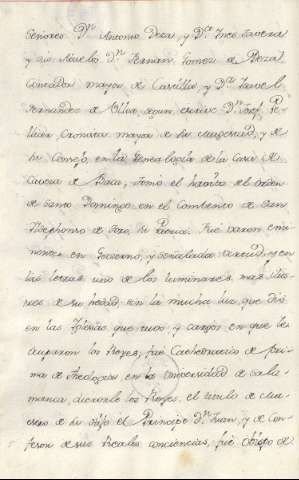 Señores Dn. Antonio Deza, y Da. Ines Tavera
y sus Abuelos Dn. Fernan Gomez de Deza
Contador mayor de Castilla, y Da. Isavel
Fernandez de Ulloa segun escrive Dn. Josef Pe-
llicer Cronista mayor de su Magestad, y de
su Consejo, en la Genealogia de la Casa de
Cabeza de Baca, tomó el havito del Orden
de Santo Domingo en el Combento de San
Ildephonso de Toro, su Patria. Fue varon emi-
nente en Govierno, y señalado en virtud, y en
las letras uno de los luminares mas ilus-
tres de su hedad con la mucha luz que dió
en las Iglesias que tuvo, y cargos en que le
ocuparon los Reyes, fué Cathedratico de pri-
ma de Theologia en la Universidad de Sala-
manca, dieronle los Reyes el titulo de Ma-
estro de su hijo el Principe Dn. Juan, y de Con-
fesor de sus Reales conciencias, fué obispo de